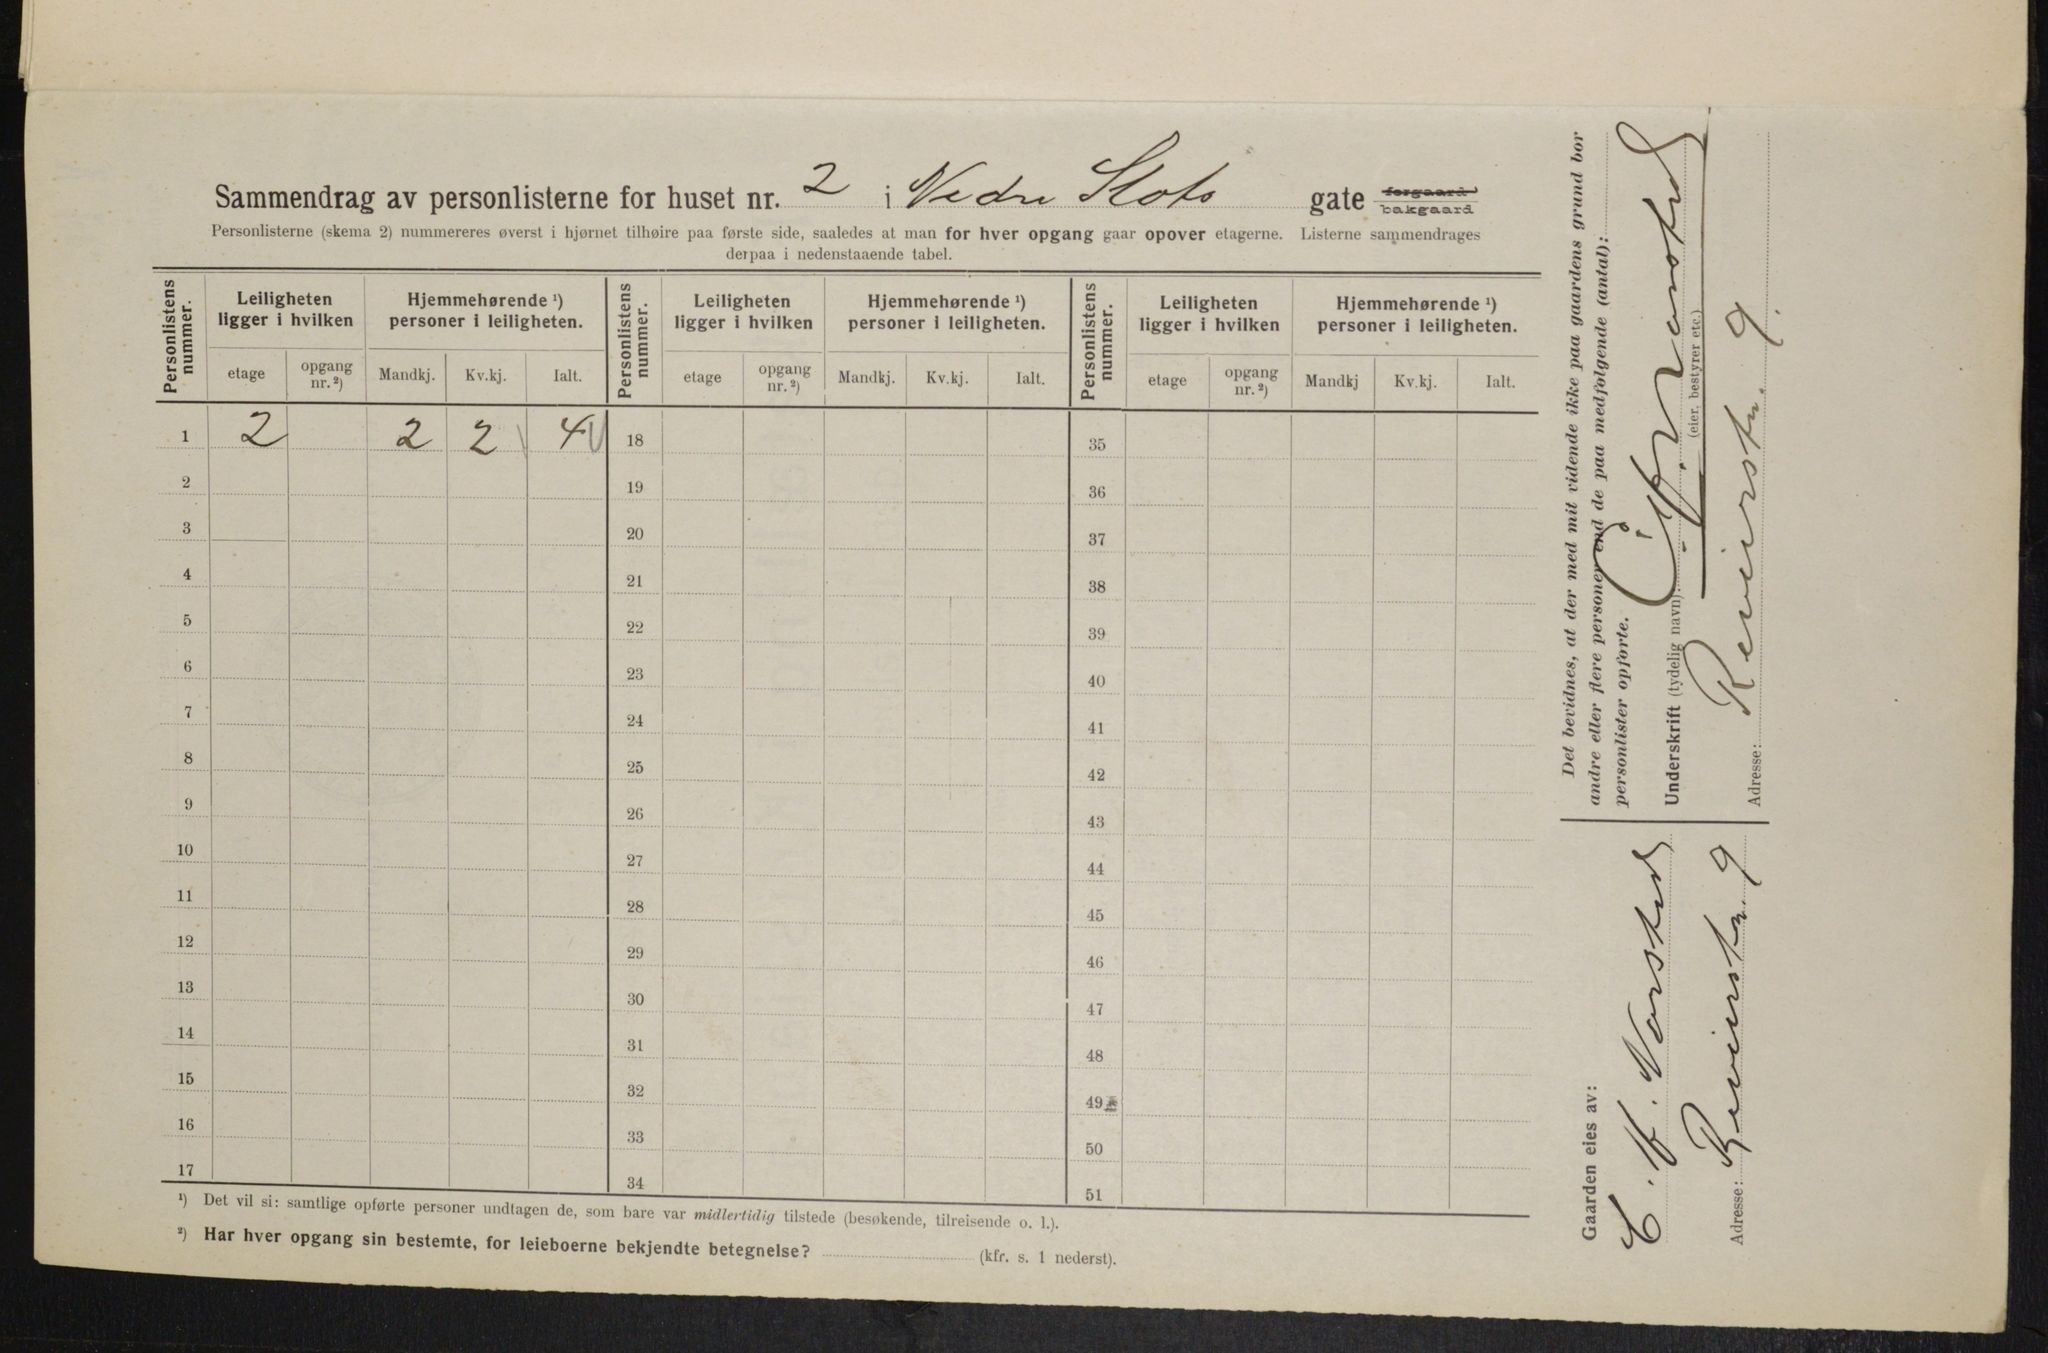 Sammendrag av personlisterne for huset nr. 2 i Nedre Slots gate forgaard bakgaard
Personlisterne (skema 2) nummereres øverst i hjørnet tilhøire paa første side, saaledes at man for hver opgang gaar opover etagerne. Listerne sammendrages
derpaa i nedenstaaende tabel.
Personlistens nummer. Leiligheten ligger i hvilken Hjemmehørende ¹) personer i leiligheten. Personlistens nummer. Leiligheten ligger i hvilken Hjemmehørende ¹) personer i leiligheten. Personlistens nummer. Leiligheten ligger i hvilken Hjemmehørende ¹) personer i leiligheten.
etage opgang nr. ²) Mandkj. Kv.kj. Ialt. etage opgang nr. ²) Mandkj. Kv.kj. Ialt. etage opgang nr. ²) Mandkj Kv.kj. Ialt.
1 2 2 2 4 18 35
2 19 36
3 20 37
4 21 38
5 22 39
6 23 40
7 24 41
8 25 42
9 26 43
10 27 44
11 28 45
12 29 46
13 30 47
14 31 48
15 32 49
16 33 50
17 34 51
¹) Det vil si: samtlige opførte personer undtagen de, som bare var midlertidig tilstede (besøkende, tilreisende o. l.).
²) Har hver opgang sin bestemte, for leieboerne bekjendte betegnelse? (kfr. s. 1 nederst).
Det bevidnes, at der med mit vidende ikke paa gaardens grund bor
andre eller flere personer end de paa medfølgende (antal):
personlister opførte.
Underskrift (tydelig navn)
(eier, bestyrer etc.)
Adresse: Revierstr. 9.
Gaarden eies av:
Adresse: Revierstr. 9